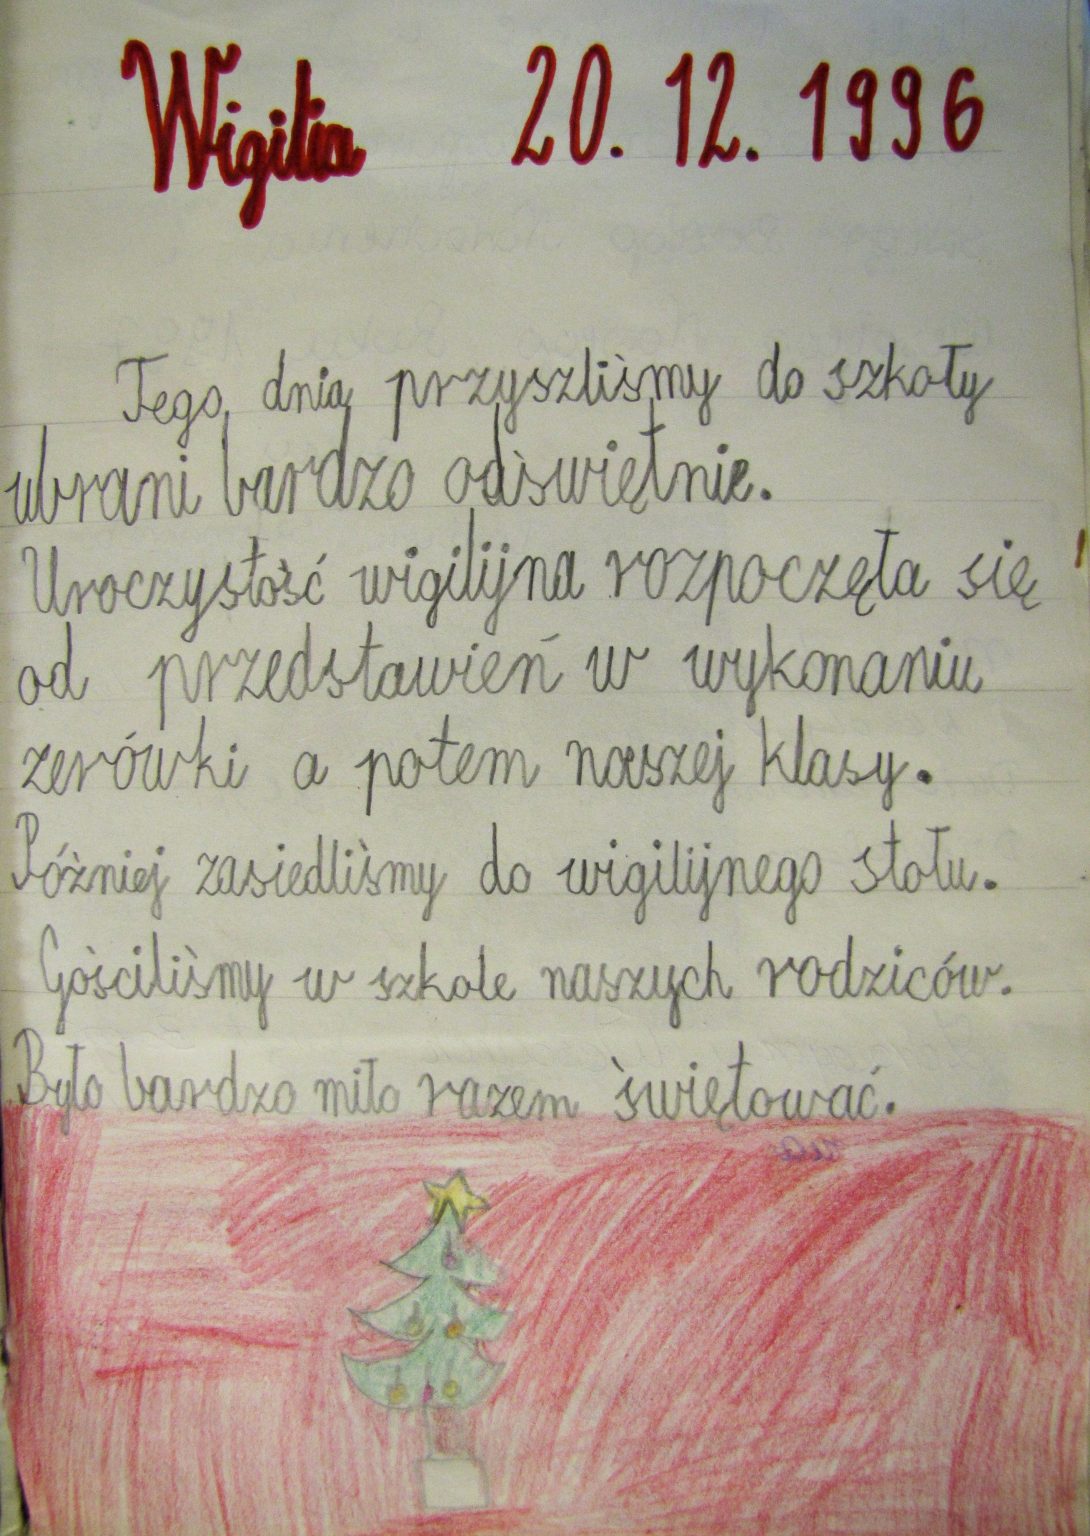 Wigilia 20. 12. 1996
Tego dnia przyszliśmy do szkoły
ubrani bardzo odświętnie.
Uroczystość wigilijna rozpoczęła się
od przedstawień w wykonaniu
zerówki a potem naszej klasy.
Później zasiedliśmy do wigilijnego stołu.
Gościliśmy w szkole naszych rodziców.
Było bardzo miło razem świętować.